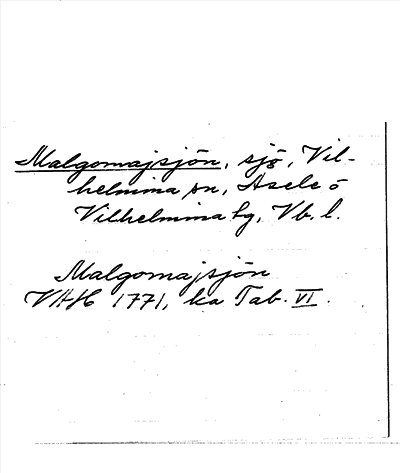 Malgomajsjön, sjö, Vil-
helmina sn, Åsele o
Vilhelmina tg, Vb. l.
Malgomajsjön
VAH 1771, ka Tab. VI.